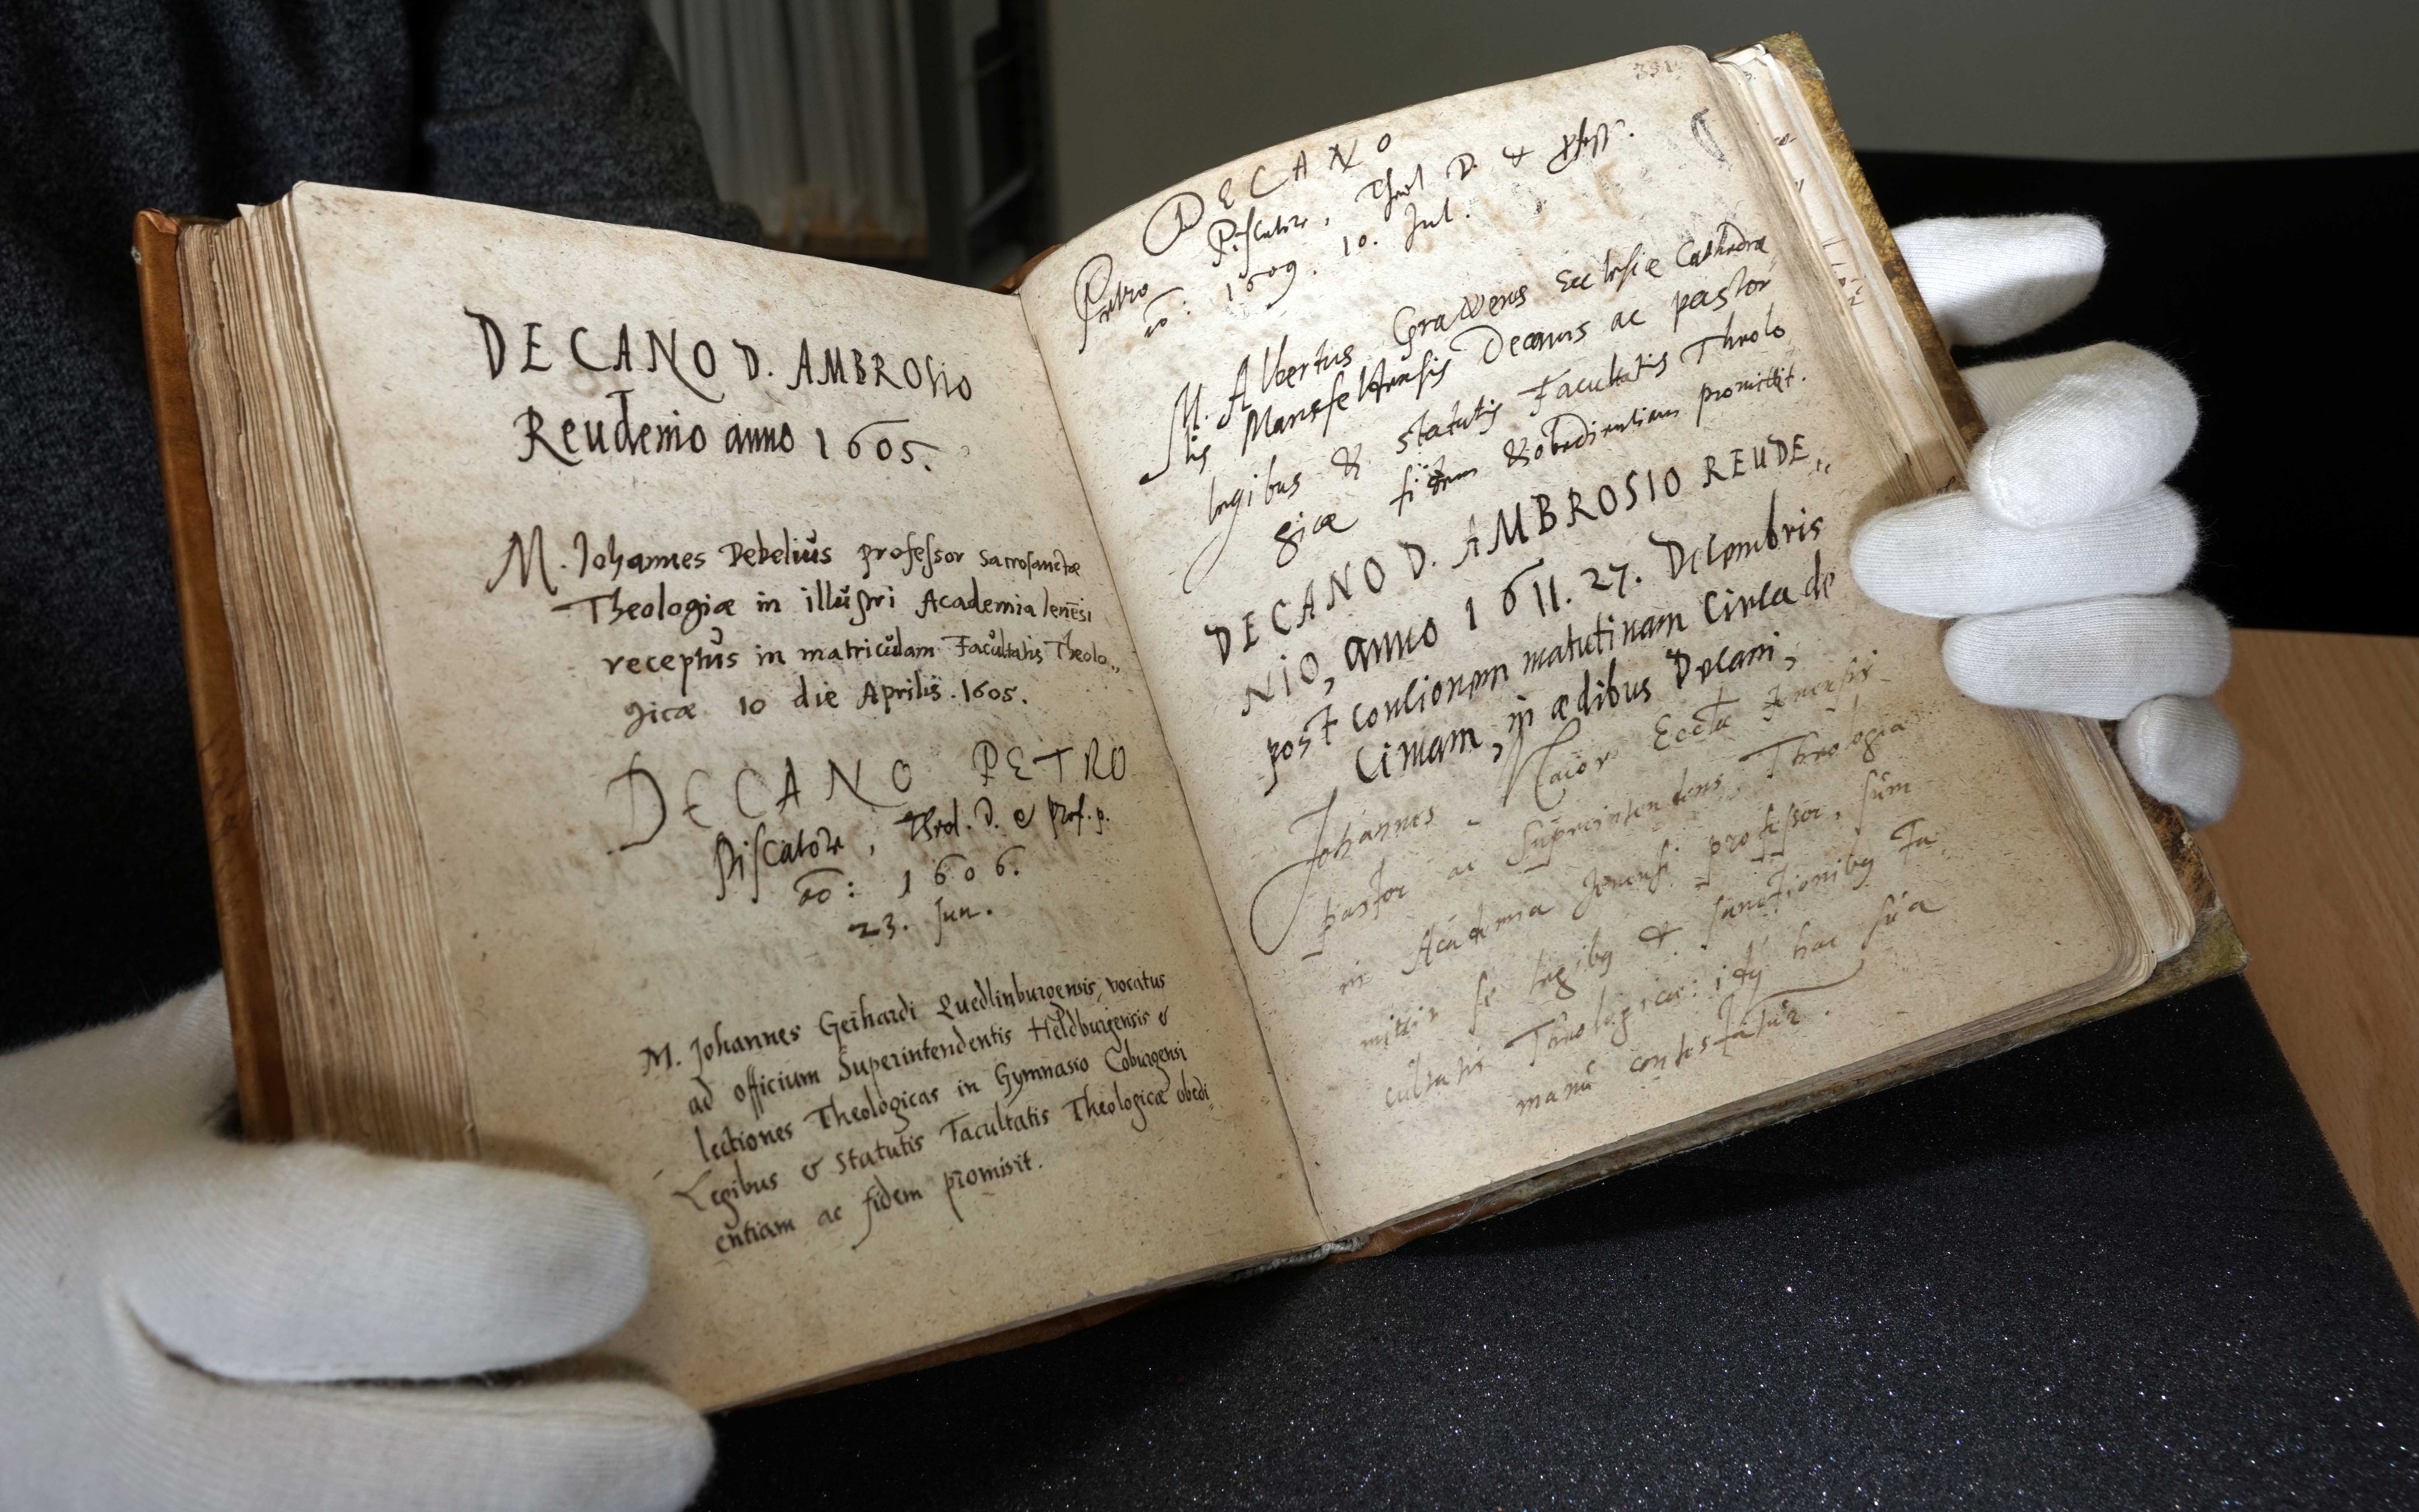 DECANO D. AMBROSIO
Reudenio anno 1605.
M. Johannes Debelius professor Sacrosanctæ
Theologiæ in illustri Academia Ienēsi
receptus in matriculam Facultatis Theolo„
gicæ 10 die Aprilis. 1605.
DECANO PETRO
Piscatore, Theol. D. & Prof. p.
ao: 1606.
23. Jun.
M. Johannes Gerhardi Quedlinburgensis, vocatus
ad officium Superintendentis Heldburgensis &
lectiones Theologicas in Gymnasio Coburgensi
Legibus & Statutis Facultatis Theologicæ obedi„
entiam ac fidem promisit.
331
DECANO
Petro Piscatore, Theol D. &
ao: 1609. 10. Jul.
M. Albertus Grawerus Ecclesiæ Cathedra
lis Mansfeldensis Decanus ac pastor
legibus & statutis Facultatis Theolo
gicæ fidem & obedientiam promittit.
DECANO D. AMBROSIO REUDE„
NIO, anno 1611. 27. Decembris
post concionem matutinam circa de
cimam, in ædibus Decani,
Johannes Maior Eccłæ Jenensis
pastor ac Superintendens, Theologiæ
in Academia Jenensi professor, sum
mittit se legibq & sanctionibq Fa„
cultatis Theologicæ: idq hac sua
manu contestatur.